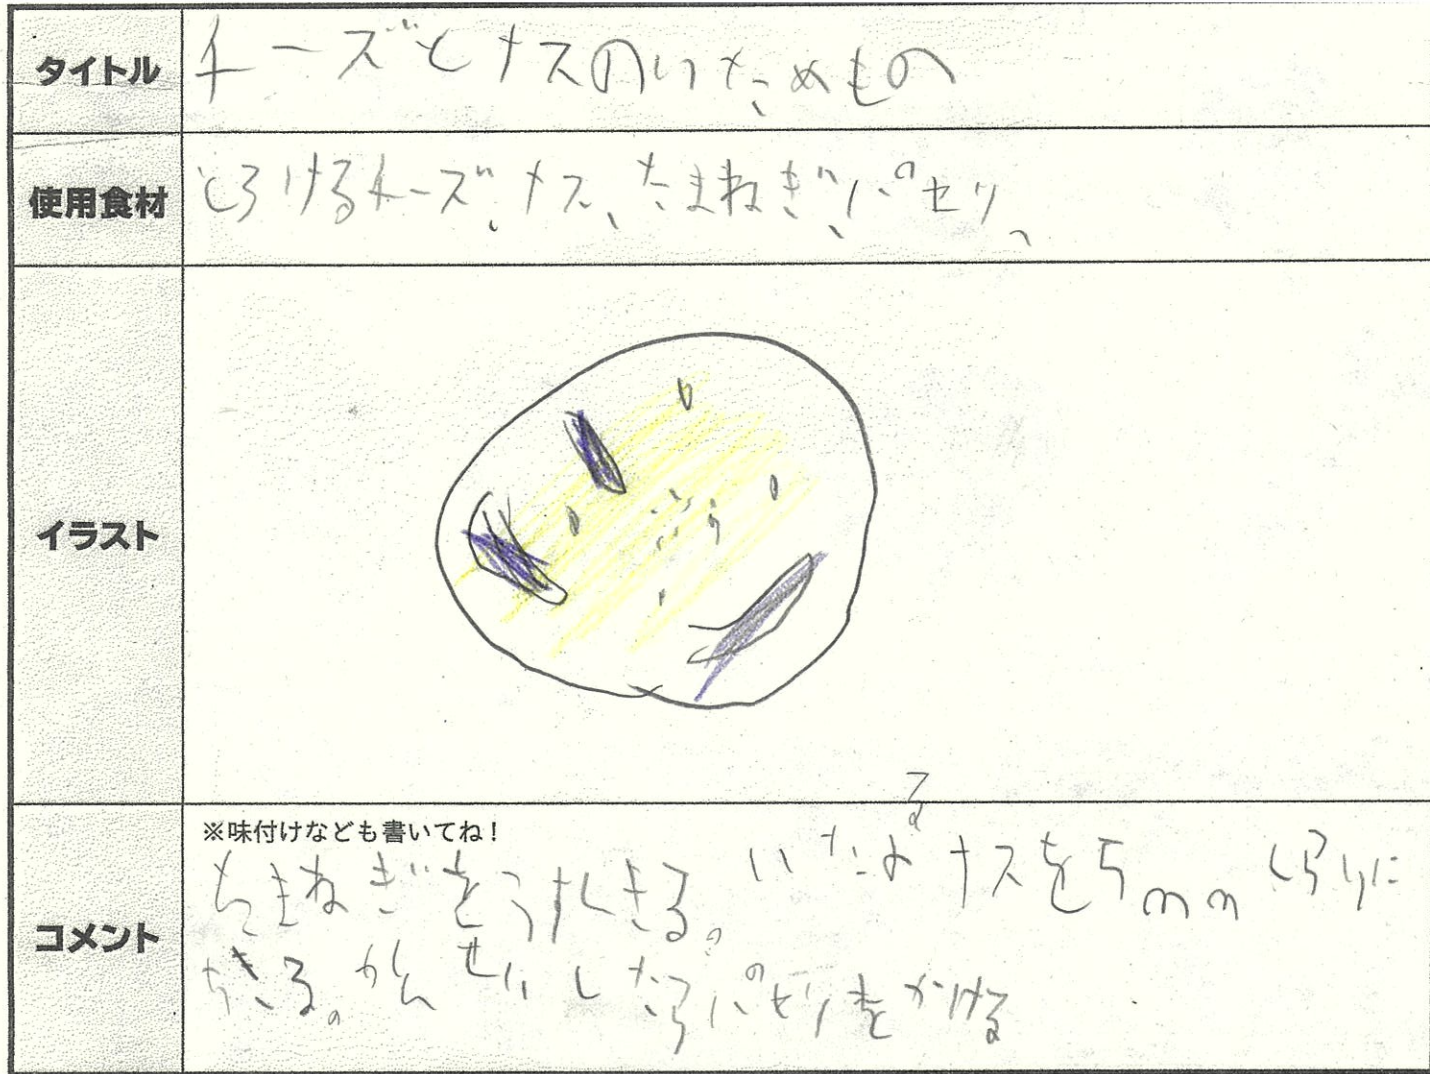 タイトル
チーズとナスのいためもの
使用食材
とろけるチーズ、ナス、たまねぎ、パセリ、
イラスト
コメント
※味付けなども書いてね!
たまねぎをうすくきる。 ナスを5mmくらいに
きる。かんせいしたらパセリをかける